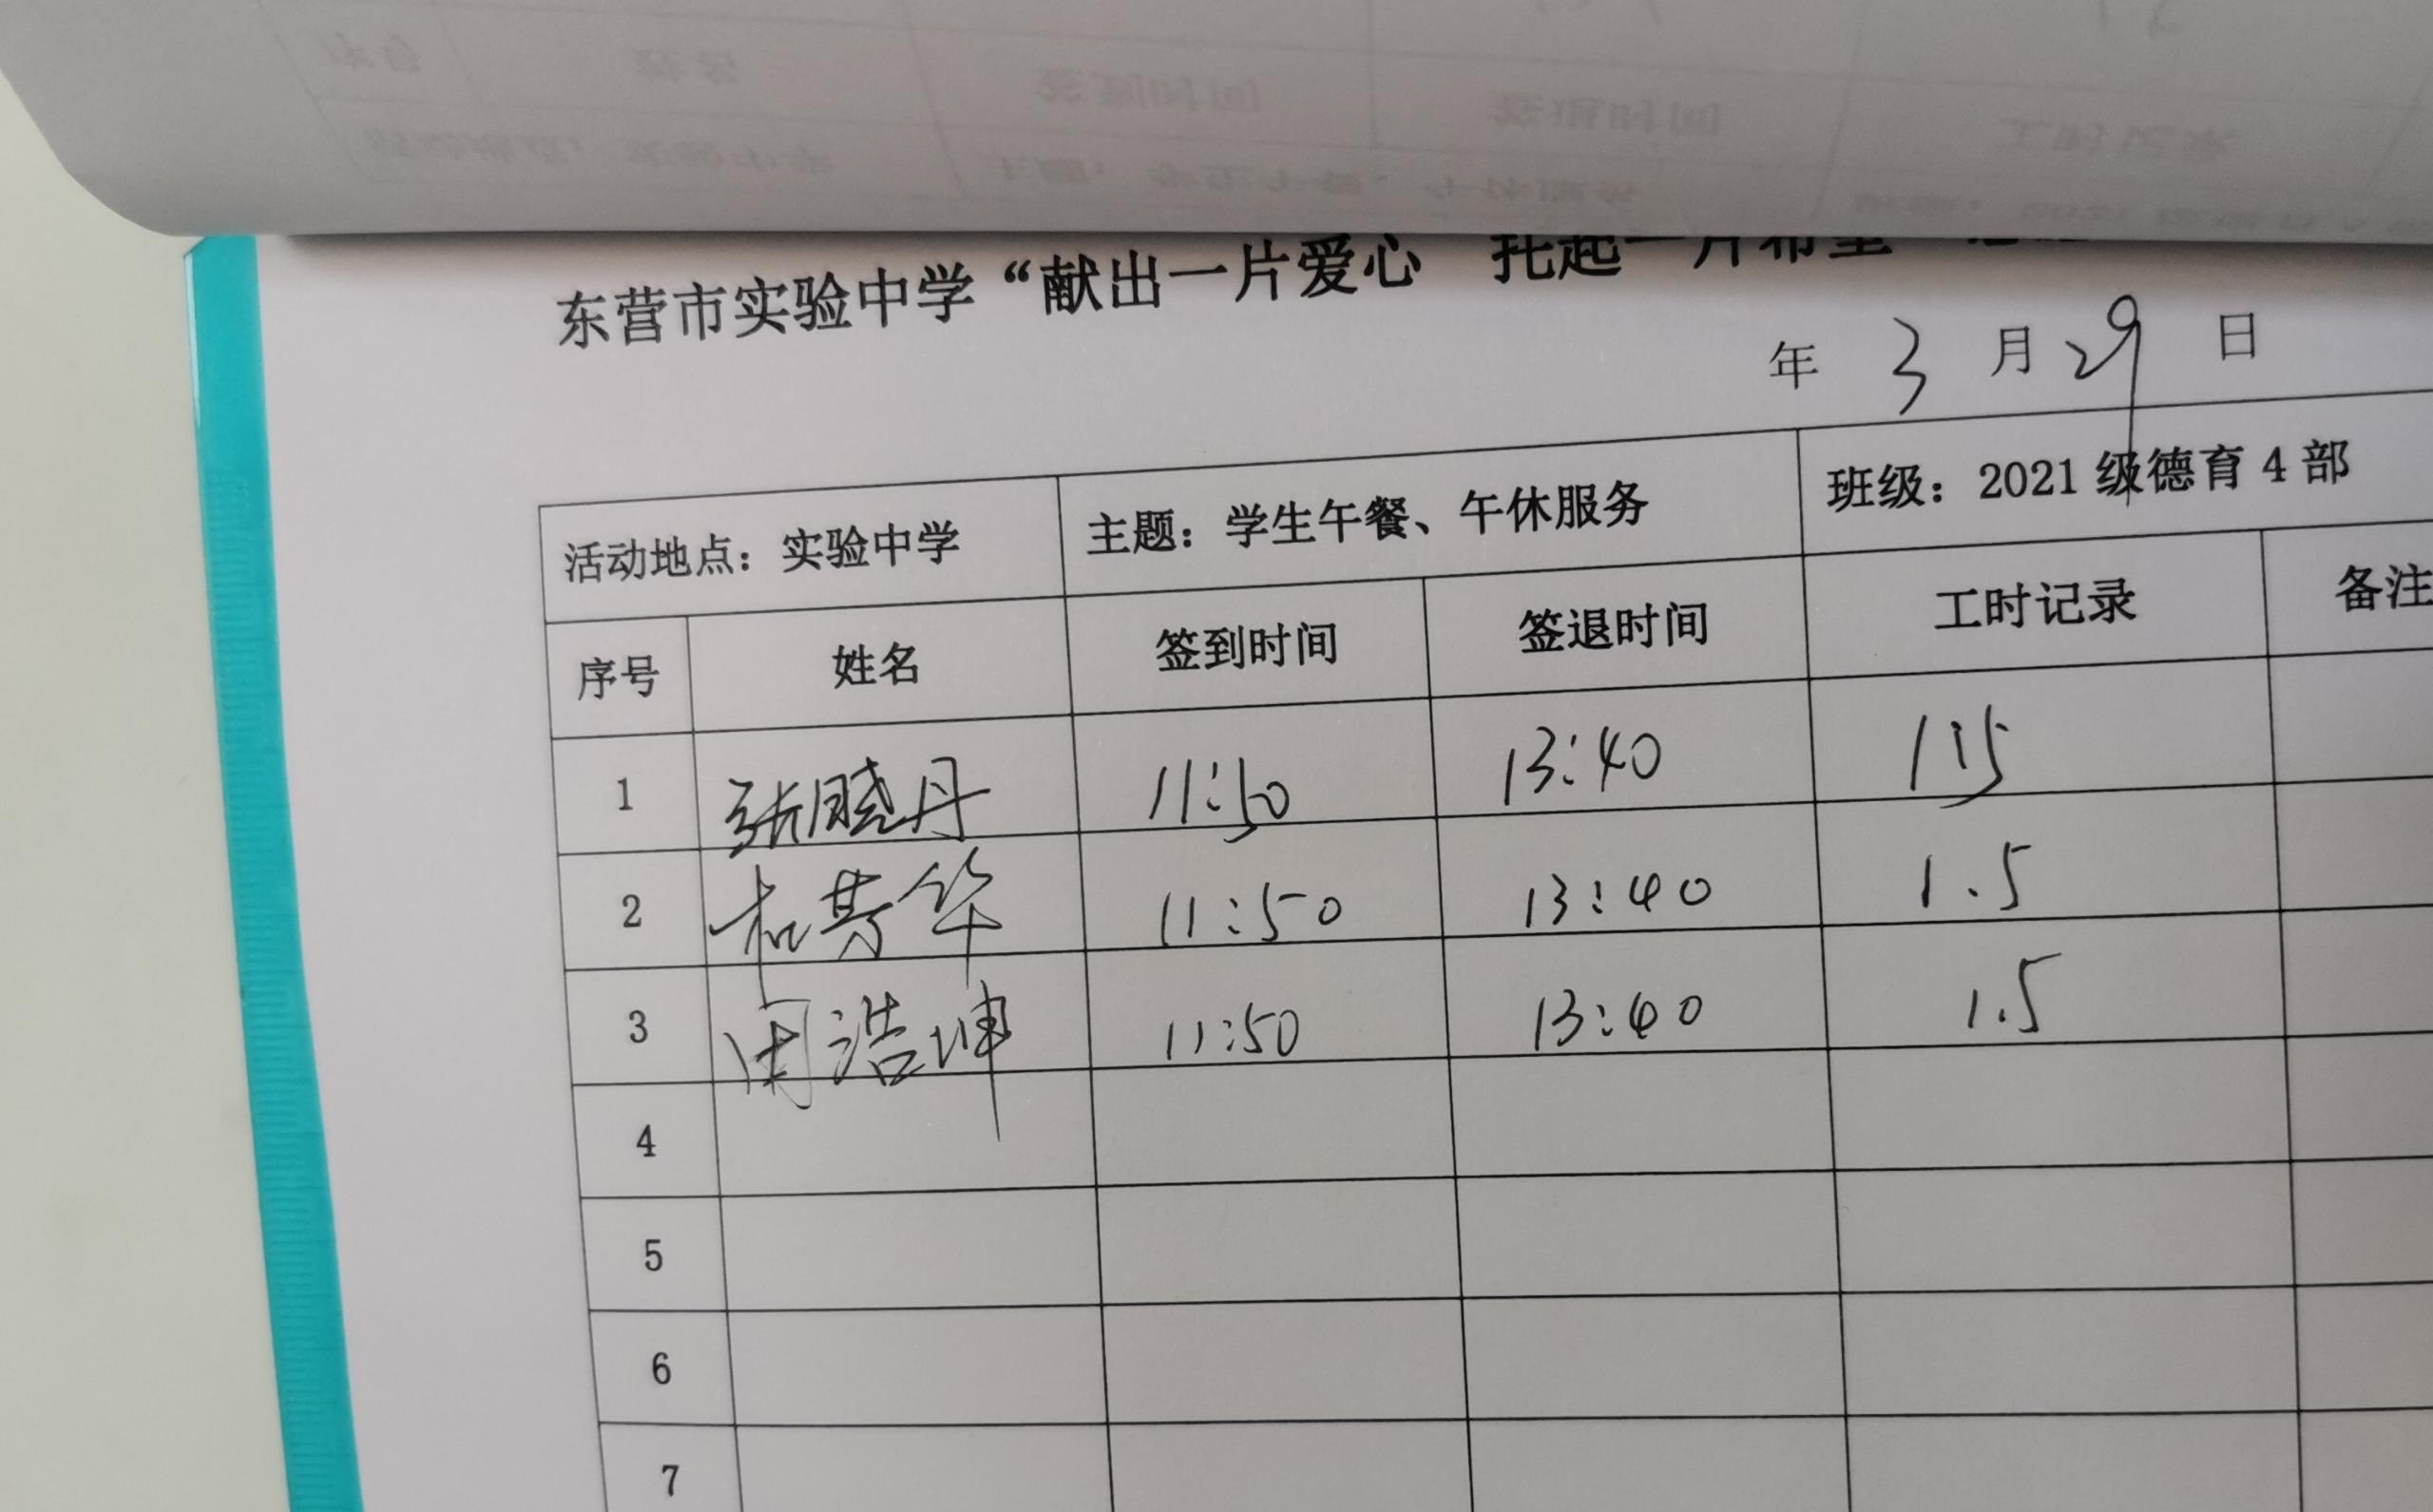 东营市实验中学“献出一片爱心 托起一片希望”
年 3 月 29 日
活动地点：实验中学 主题：学生午餐、午休服务 班级：2021级德育4部
序号 姓名 签到时间 签退时间 工时记录 备注
1 张晓丹 11:50 13:40 1.5
2 华 11:50 13:40 1.5
3 周浩坤 11:50 13:40 1.5
4
5
6
7